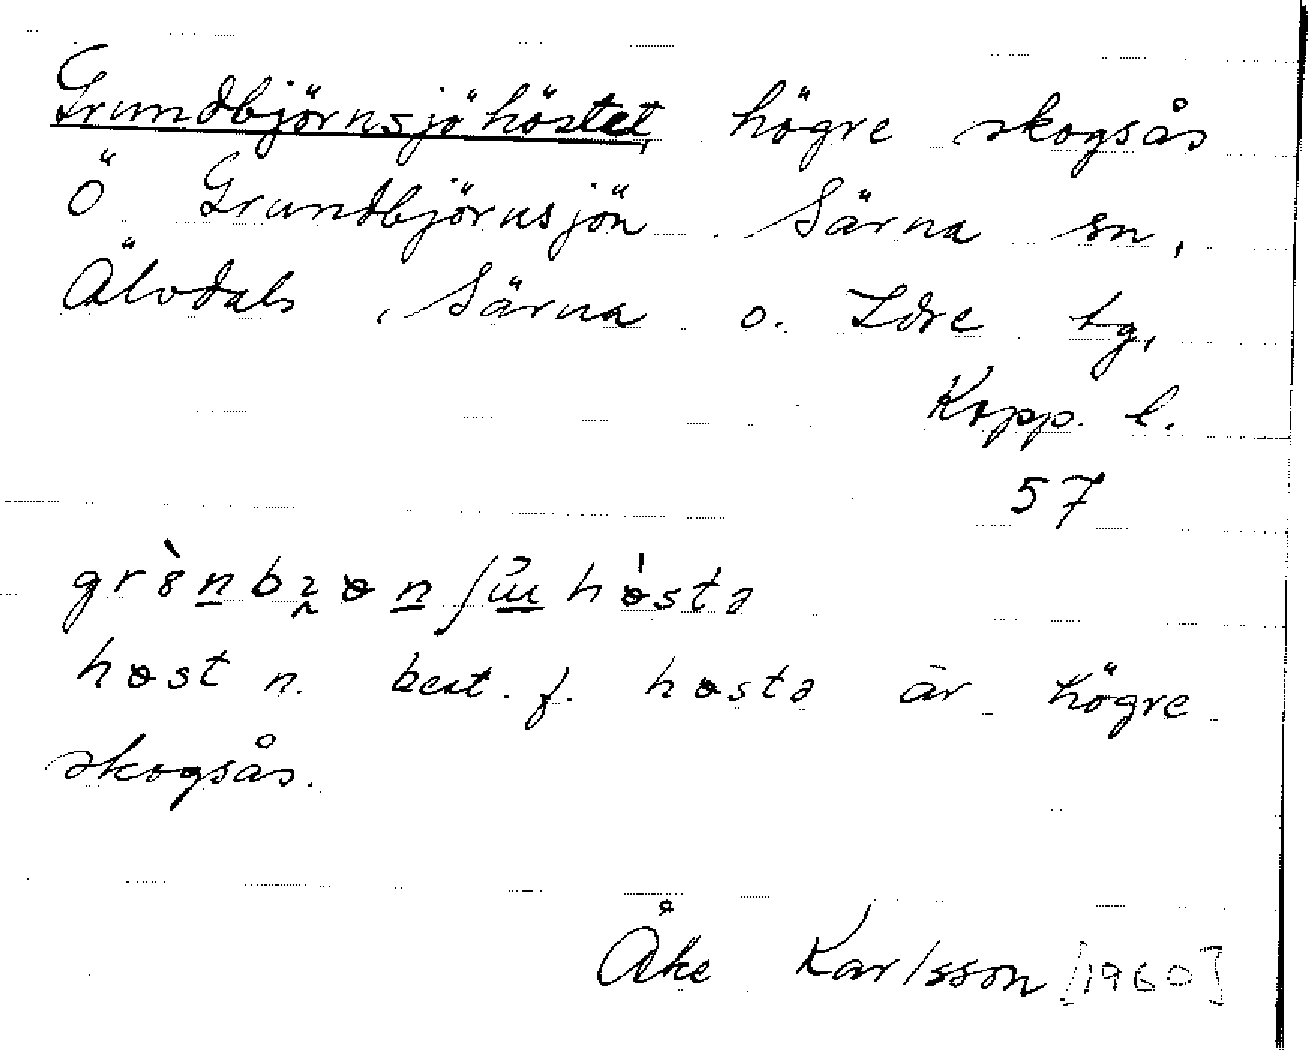 Grundbjörnsjöhöstet, högre skogsås
Ö Grundbjörnsjön. Särna sn,
Älvdals, Särna o. Idre tg,
Kopp. l.
57
host n. best. f. hosta är högre
skogsås.
Åke Karlsson [1960]